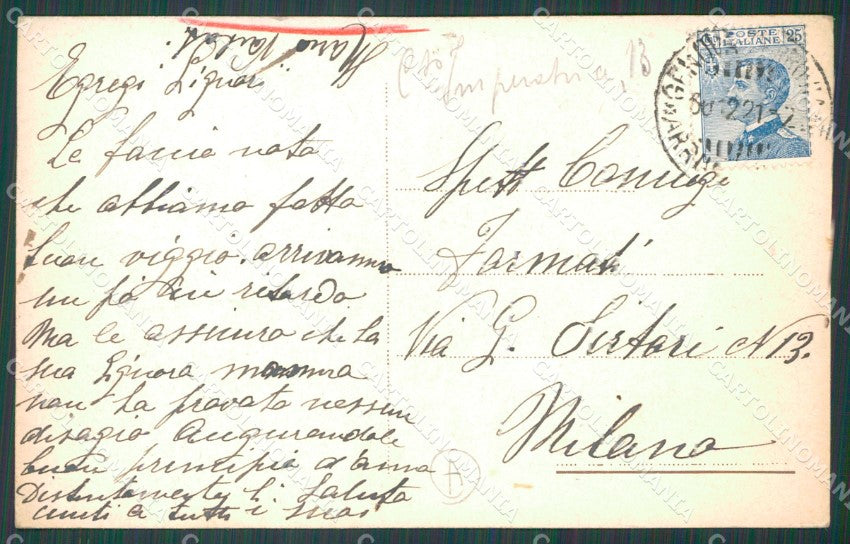 Egregi Signori
Le faccio nota
che abbiamo fatto
buon viggio. arrivammo
un pò in retardo
Ma le assicuro che la
sua Signora mamma
non ha provato nessun
disagio Augurandole
buon principio d'anno
Distintamente Li Saluto
uniti a tutti i suoi
Mario
Imperatrice, 13
POSTE ITALIANE 25
GENOVA
ARRIVI
2 21
Spett Coniugi
Formati
Via G. Sirtori N 13.
Milano
A
CARTOLINOMANIA